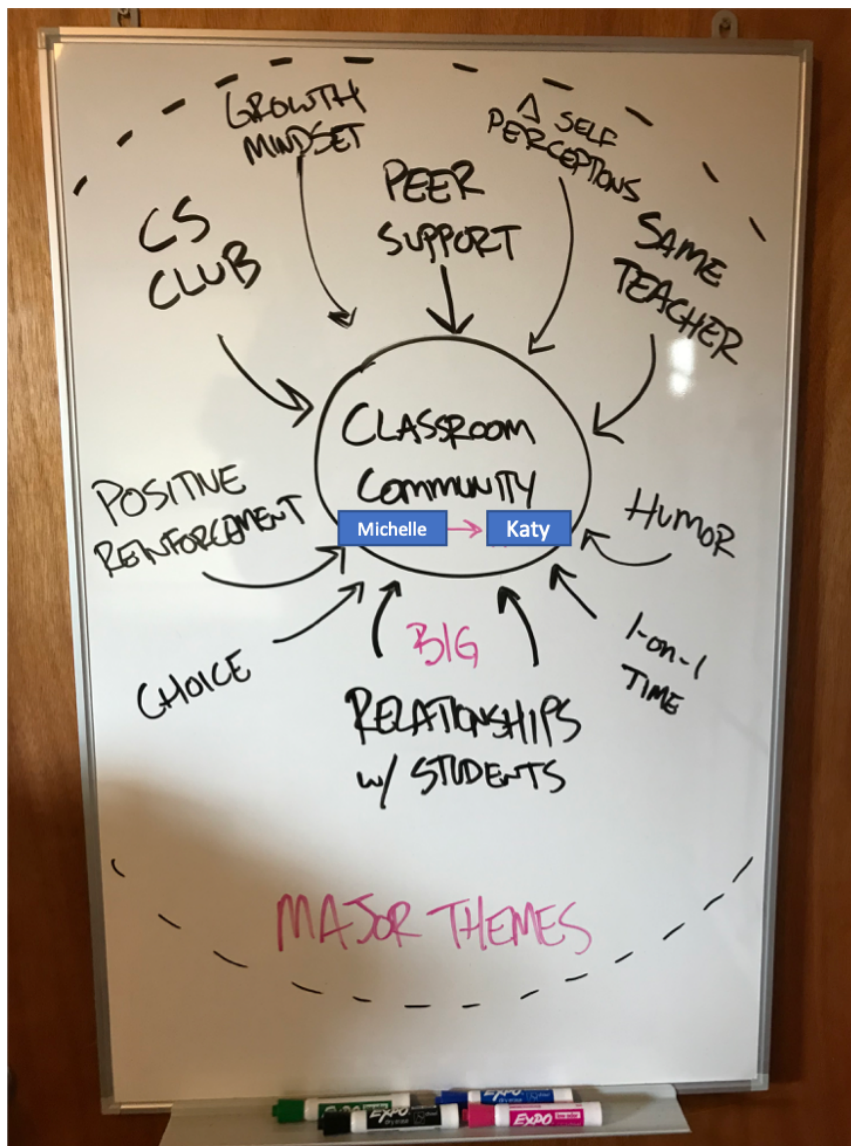 GROWTH
MINDSET
Δ SELF
PERCEPTIONS
PEER
SUPPORT
CS
CLUB
SAME
TEACHER
CLASSROOM
COMMUNITY
Michelle → Katy
POSITIVE
REINFORCEMENT
HUMOR
CHOICE
BIG
RELATIONSHIPS
w/ STUDENTS
1-on-1
TIME
MAJOR THEMES
EXPO
EXPO
EXPO
EXPO